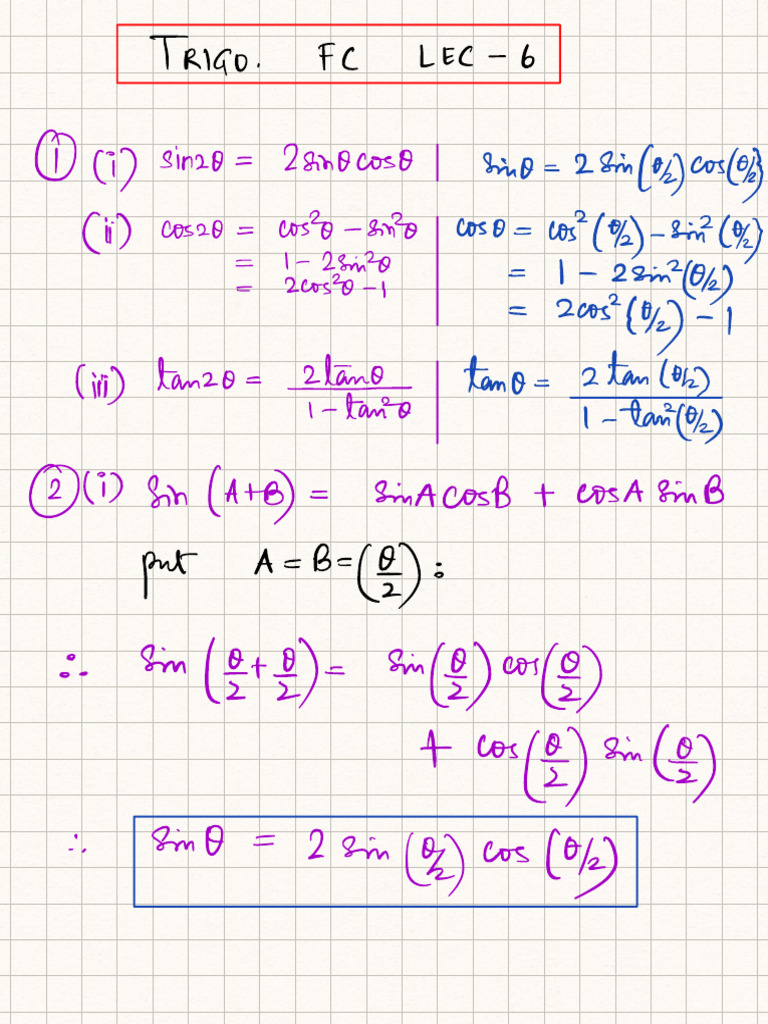 TRIGO. FC LEC - 6
① (i) sin2θ = 2sinθcosθ | sinθ = 2 sin(θ/2) cos(θ/2)
(ii) cos2θ = cos²θ - sin²θ | cosθ = cos²(θ/2) - sin²(θ/2)
= 1 - 2sin²θ | = 1 - 2sin²(θ/2)
= 2cos²θ - 1 | = 2cos²(θ/2) - 1
(iii) tan2θ = 2tanθ / 1 - tan²θ | tanθ = 2 tan(θ/2) / 1 - tan²(θ/2)
② (i) sin (A+B) = sinA cosB + cosA sinB
put A = B = (θ/2) :
∴ sin (θ/2 + θ/2) = sin(θ/2) cos(θ/2)
+ cos(θ/2) sin(θ/2)
∴ sinθ = 2 sin(θ/2) cos(θ/2)